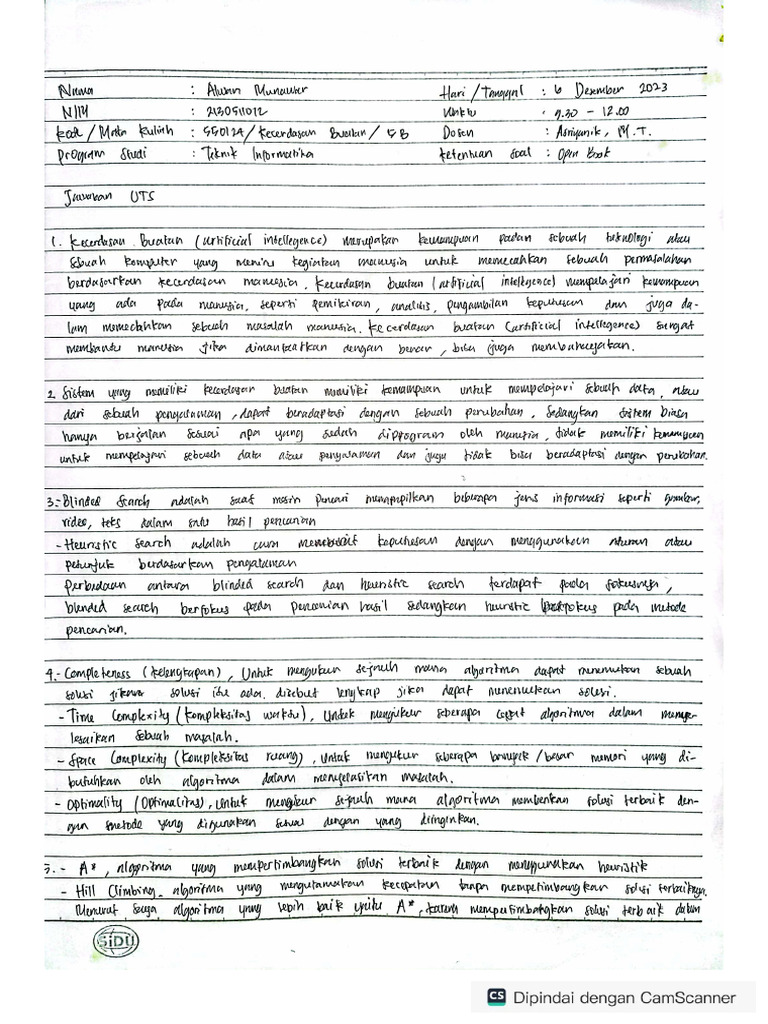 Nama : Alwan Munawar Hari/Tanggal : 6 Desember 2023
NIM : 2130511012 Waktu : 7.30 - 12.00
Kode/Mata Kuliah : 550124/Kecerdasan Buatan/5B Dosen : Asriyanik, M.T.
Program Studi : Teknik Informatika Ketentuan Soal : Open Book
Jawaban UTS
1. Kecerdasan Buatan (artificial intellegence) merupakan kemampuan padan sebuah teknologi atau
sbuah komputer yang meniru kegiatan manusia untuk memecahkan sebuah permasalahan
berdasarkan kecerdasan manusia. Kecerdasan buatan (artificial intelligence) mempelajari kemampuan
yang ada pada manusia, seperti pemikiran, analisis, pengambilan keputusan dan juga da-
lam memecahkan sebuah masalah manusia. Kecerdasan buatan (artificial intelligence) sangat
membantu manusia jika dimanfaatkan dengan benar, bisa juga membahayakan.
2. Sistem yang memiliki kecerdasan buatan memiliki kemampuan untuk mempelajari sebuah data, atau
dari sebuah pengalaman, dapat beradaptasi dengan sebuah perubahan, sedangkan sistem biasa
hanya berjalan sesuai apa yang sudah diprogram oleh manusia, tidak memiliki kemampuan
untuk mempelajari sebuah data atau pengalaman dan juga tidak bisa beradaptasi dengan perubahan.
3.- Blinded Search adalah saat mesin pencari menampilkan beberapa jenis informasi seperti gambar,
video, teks dalam satu hasil pencarian
- Heuristic Search adalah cara membuat keputusan dengan menggunakan aturan atau
petunjuk berdasarkan pengalaman
Perbedaan antara blinded search dan heuristic search terdapat pada fokusnya,
blended search berfokus pada pencarian hasil sedangkan heuristic berfokus pada metode
pencarian.
4.- Completeness (kelengkapan), Untuk mengukur sejauh mana algoritma dapat menemukan sebuah
solusi jikara solusi itu ada. disebut lengkap jika dapat menemukan solusi.
- Time Complexity (Kompleksitas waktu), Untuk mengukur seberapa cepat algoritma dalam menye-
lesaikan sebuah masalah.
- Space Complexity (Kompleksitas ruang), Untuk mengukur seberapa banyak/besar memori yang di-
butuhkan oleh algoritma dalam menyelesaikan masalah.
- Optimality (Optimalitas), Untuk mengukur sejauh mana algoritma memberikan solusi terbaik den-
gan metode yang digunakan sesuai dengan yang diinginkan.
5. - A*, algoritma yang mempertimbangkan solusi terbaik dengan menggunakan heuristik
- Hill Climbing, algoritma yang mengutamakan kecepatan tanpa mempertimbangkan solusi terbaiknya.
Menurut saya algoritma yang lebih baik yaitu A*, karena mempertimbangkan solusi terbaik dalam
SiDU
CS Dipindai dengan CamScanner